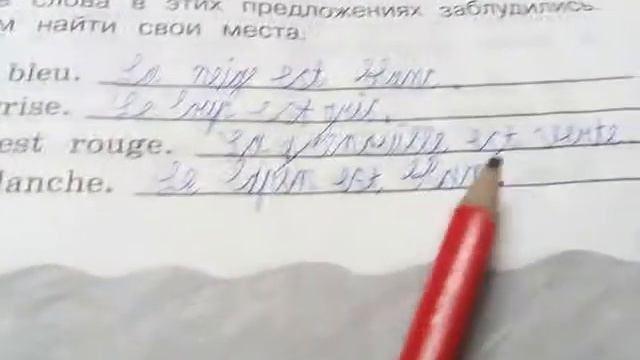 слова в этих предложениях заблудились
м найти свои места.
bleu. La neige est
rise. Le loup est gris.
est rouge. La grenouille est verte
lanche. Le sapin est